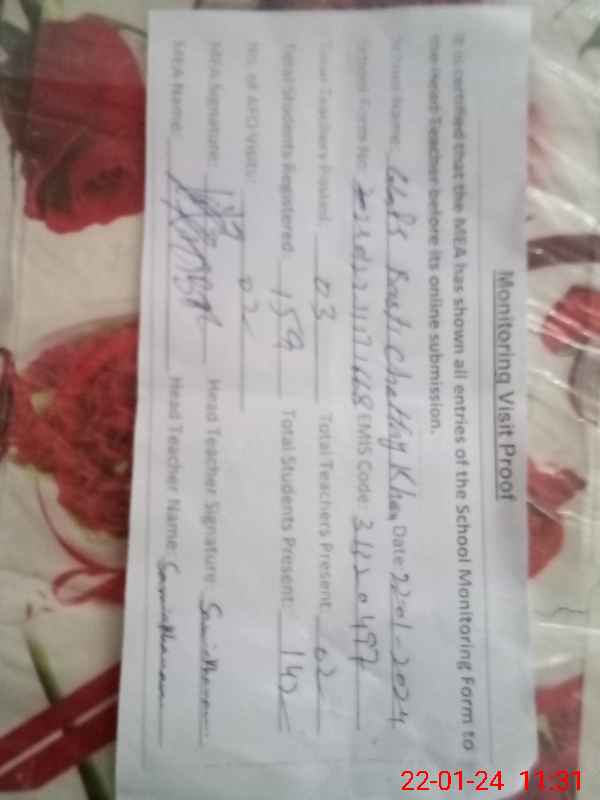 Monitoring Visit Proof
It is certified that the MEA has shown all entries of the School Monitoring Form to
the Head Teacher before its online submission.
School Name: Basti Khan Date: 22-01-2024
School Form No: EMIS Code: 31120497
Total Teachers Posted: 03 Total Teachers Present: 02
Total Students Registered: 159 Total Students Present: 142
No. of AEO Visits: 02
MEA Signature: Head Teacher Signature:
MEA Name: Head Teacher Name:
22-01-24 11:31